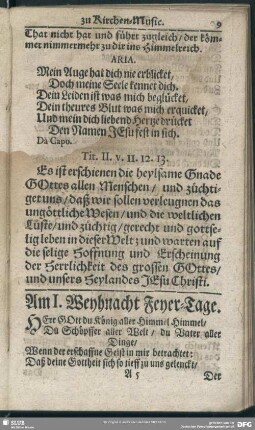 zu Kirchen-Music. 9
That nicht hat und führt zugleich/ der köm-
met nimmermehr zu dir ins Himmelreich.
ARIA.
Mein Auge hat dich nie erblicket,
Doch meine Seele kennet dich.
Dein Leiden ist was mich beglücket,
Dein theures Blut was mich erquicket,
Und mein dich liebend Hertze drücket
Den Namen JEsu fest in sich.
Da Capo.
Tit. II. v. 11. 12. 13.
Es ist erschienen die heylsame Gnade
GOttes allen Menschen/ und züchti-
get uns/ daß wir sollen verleugnen das
ungöttliche Wesen/ und die weltlichen
Lüste/ und züchtig/ gerecht und gottse-
lig leben in dieser Welt/ und warten auf
die selige Hoffnung und Erscheinung
der Herrlichkeit des grossen GOttes/
und unsers Heylandes JEsu Christi.
Am I. Weyhnacht Feyer-Tage.
HErr GOtt du König aller Himmel Himmel/
Du Schöpffer aller Welt/ du Vater aller
Dinge/
Wenn der erschaffne Geist in mir betrachtet:
Daß deine Gottheit sich so tieff zu uns gelenckt/
A 5 Der